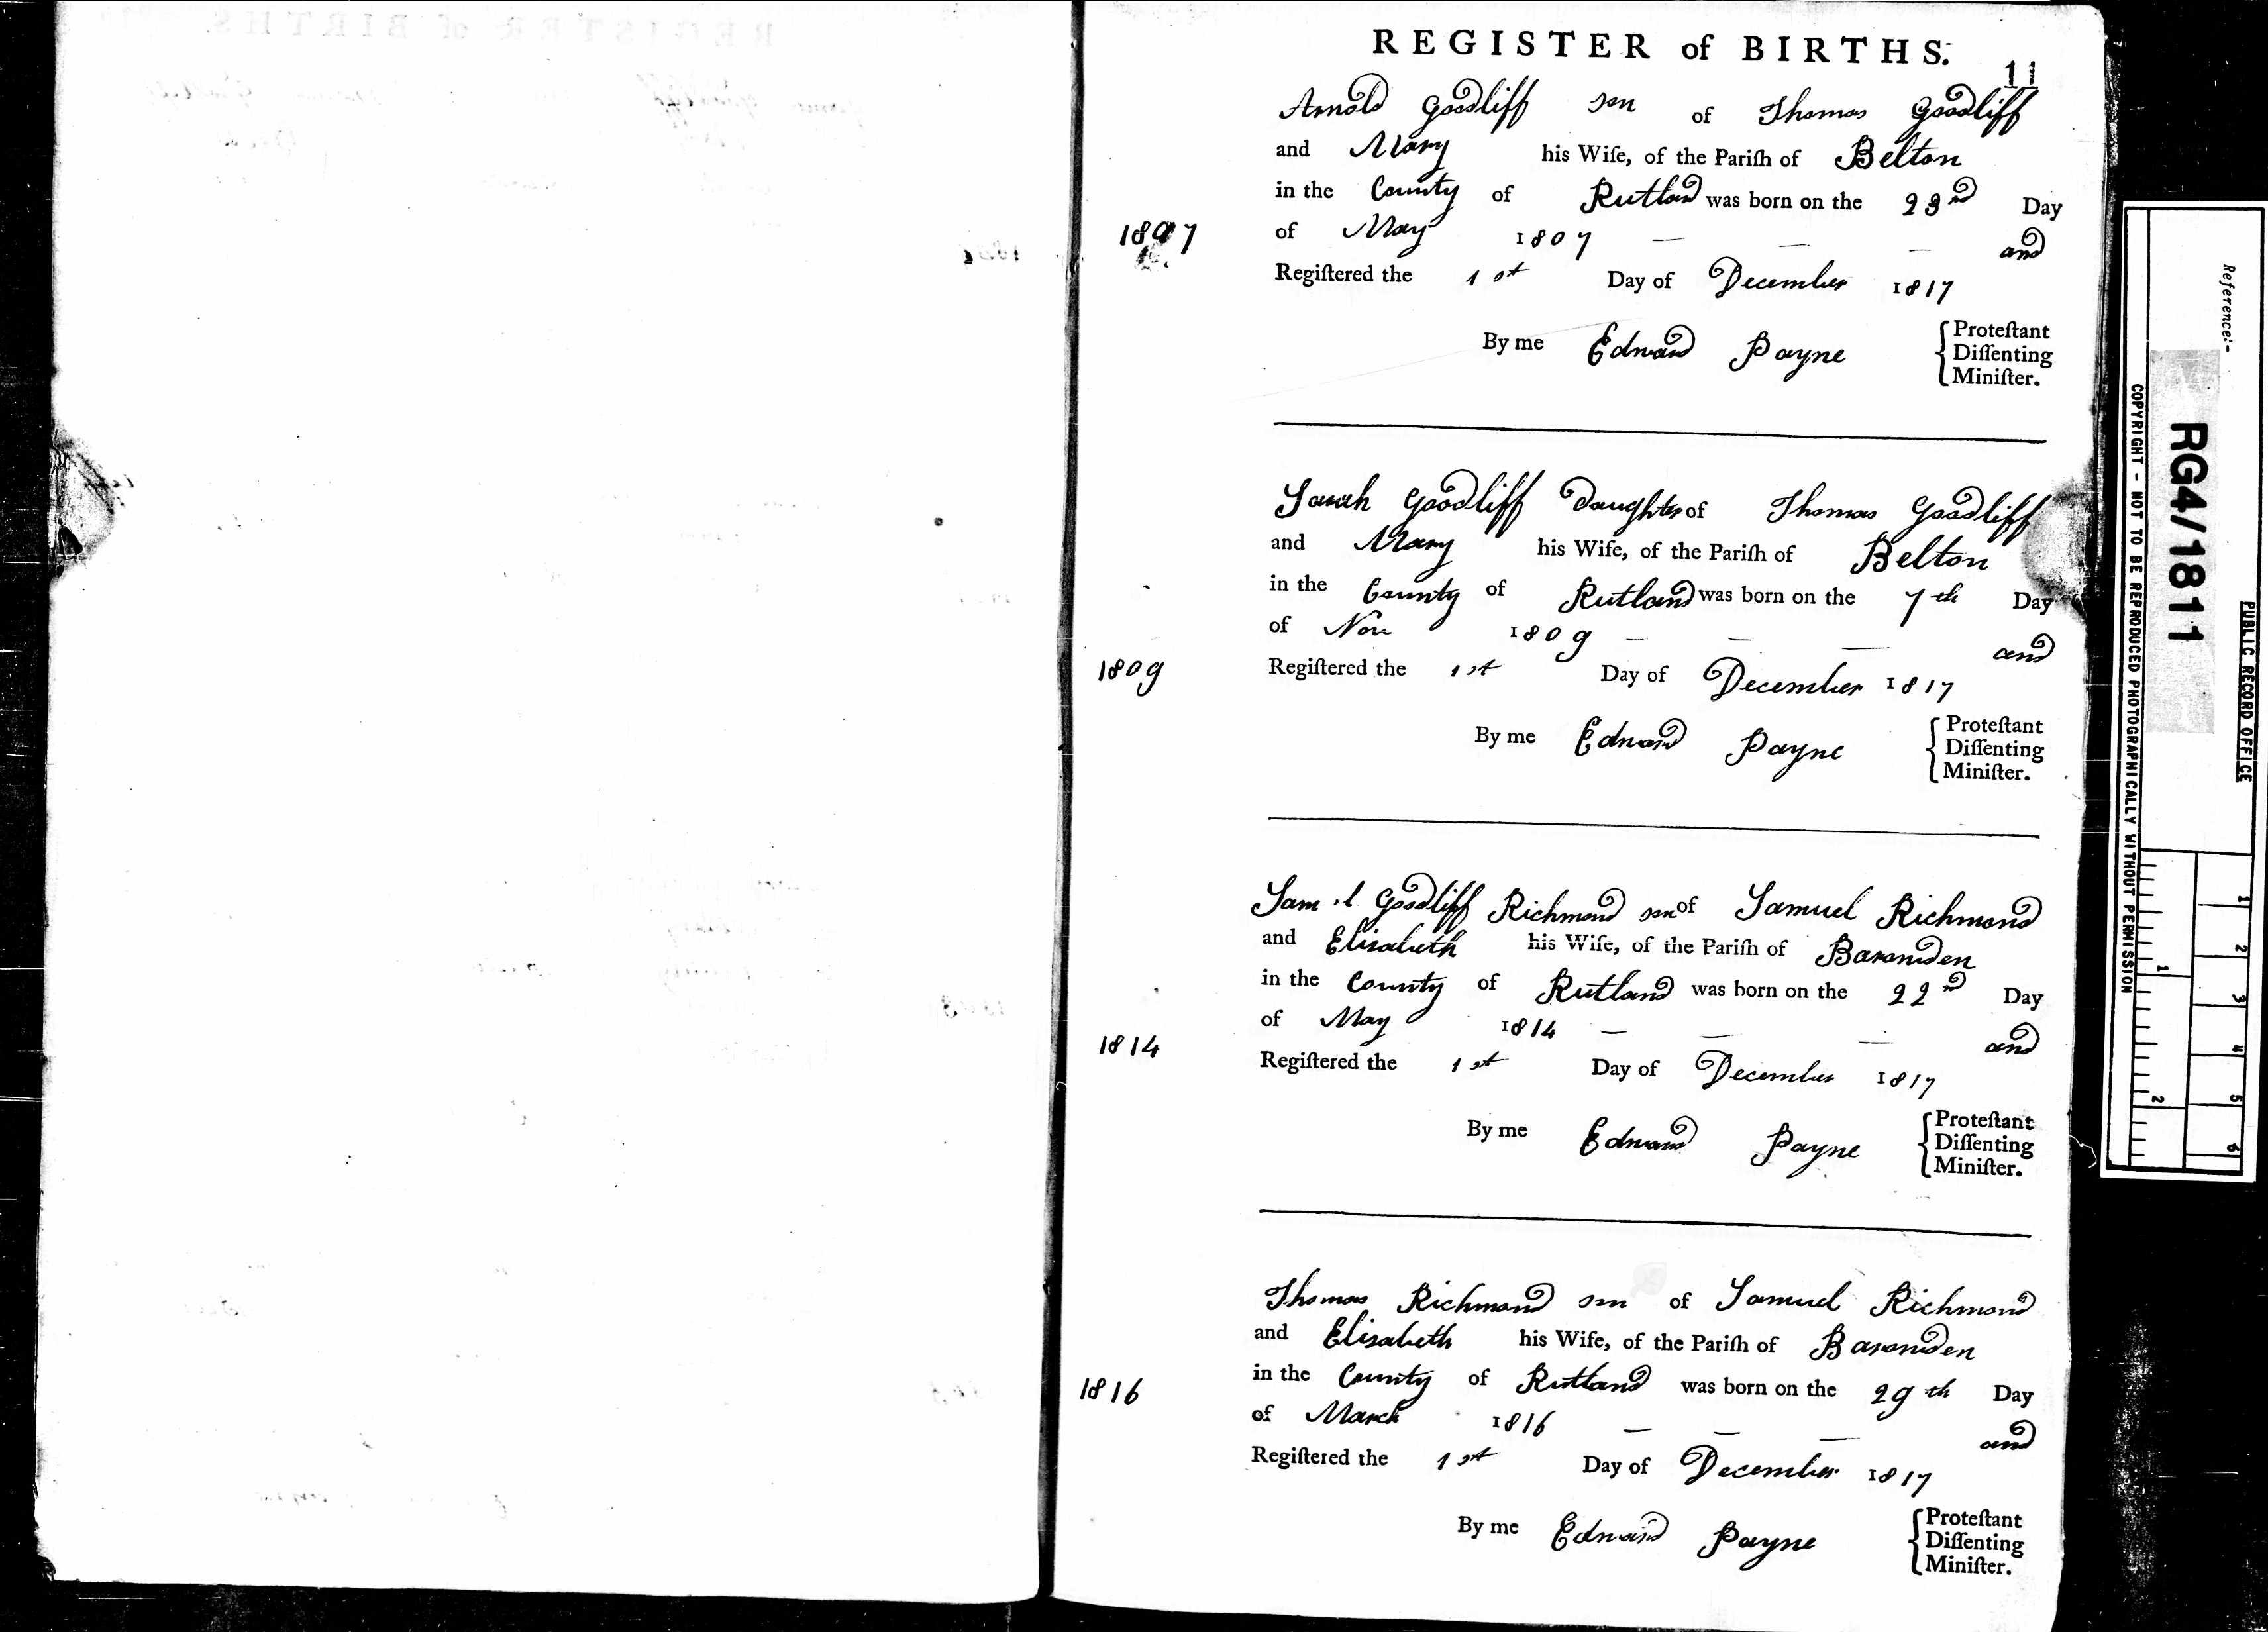 REGISTER of BIRTHS.
11
Arnold Goodliff son of Thomas Goodliff
and Mary his Wife, of the Pariſh of Belton
in the County of Rutland was born on the 23rd Day
1807
of May 1807 — — — and
Regiſtered the 1st Day of December 1817
By me Edward Payne { Proteſtant
Diſſenting
Miniſter.
Sarah Goodliff Daughter of Thomas Goodliff
and Mary his Wife, of the Pariſh of Belton
in the County of Rutland was born on the 7th Day
of Nov 1809 — — — and
1809
Regiſtered the 1st Day of December 1817
By me Edward Payne { Proteſtant
Diſſenting
Miniſter.
Goodliff Richmond son of Samuel Richmond
and Elisabeth his Wife, of the Pariſh of
in the County of Rutland was born on the 22nd Day
of May 1814 — — — and
1814
Regiſtered the 1st Day of December 1817
By me Edward Payne { Proteſtant
Diſſenting
Miniſter.
Thomas Richmond son of Samuel Richmond
and Elisabeth his Wife, of the Pariſh of
in the County of Rutland was born on the 29th Day
1816
of March 1816 — — — and
Regiſtered the 1st Day of December 1817
By me Edward Payne { Proteſtant
Diſſenting
Miniſter.
Reference:-
RG4/1811
PUBLIC RECORD OFFICE
COPYRIGHT - NOT TO BE REPRODUCED PHOTOGRAPHICALLY WITHOUT PERMISSION
1 2 3 4 5 6
1 2